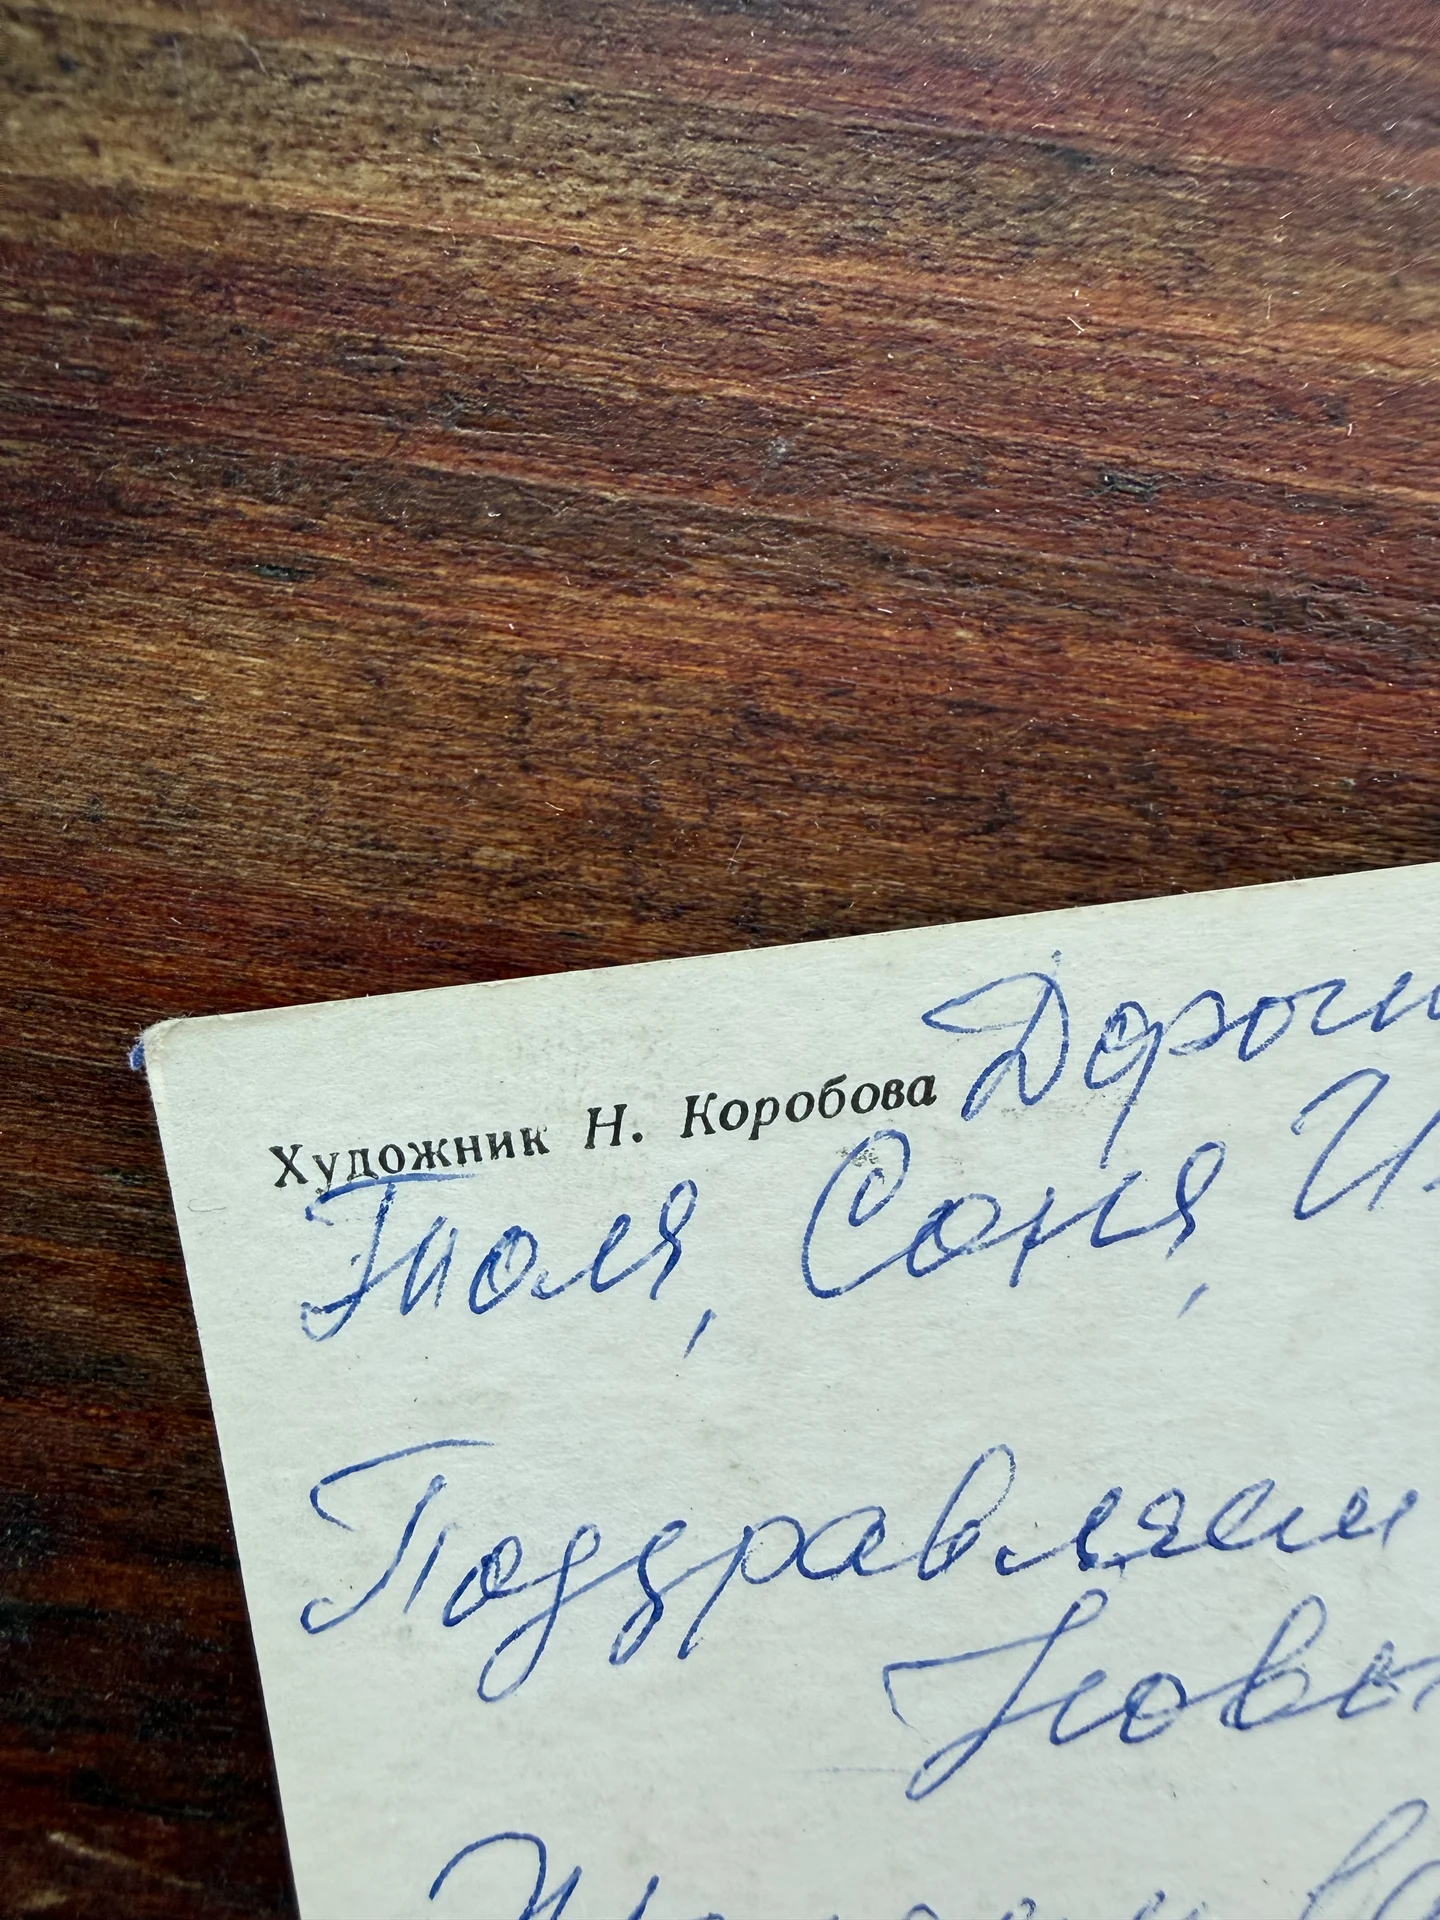 Художник Н. Коробова
Дороги
Толя, Соня, И
Поздравляем
Новы
Желаем Ва